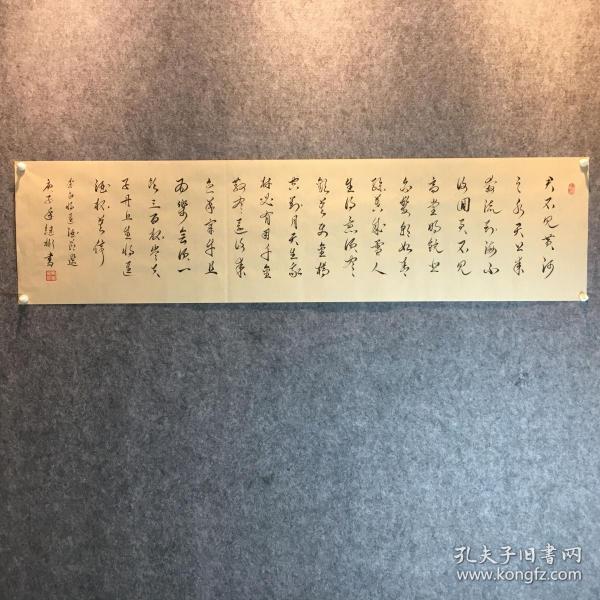 君不见黄河
之水天上来
奔流到海不
復回君不见
高堂明镜悲
白髮朝如青
絲暮成雪人
生得意須尽
歓莫使金樽
空对月天生我
材必有用千金
散尽還復来
烹羊宰牛且
為樂会須一
飲三百杯岑夫
子丹丘生将進
酒杯莫停
李白将進酒節選
書
孔夫子旧书网
www.kongfz.com